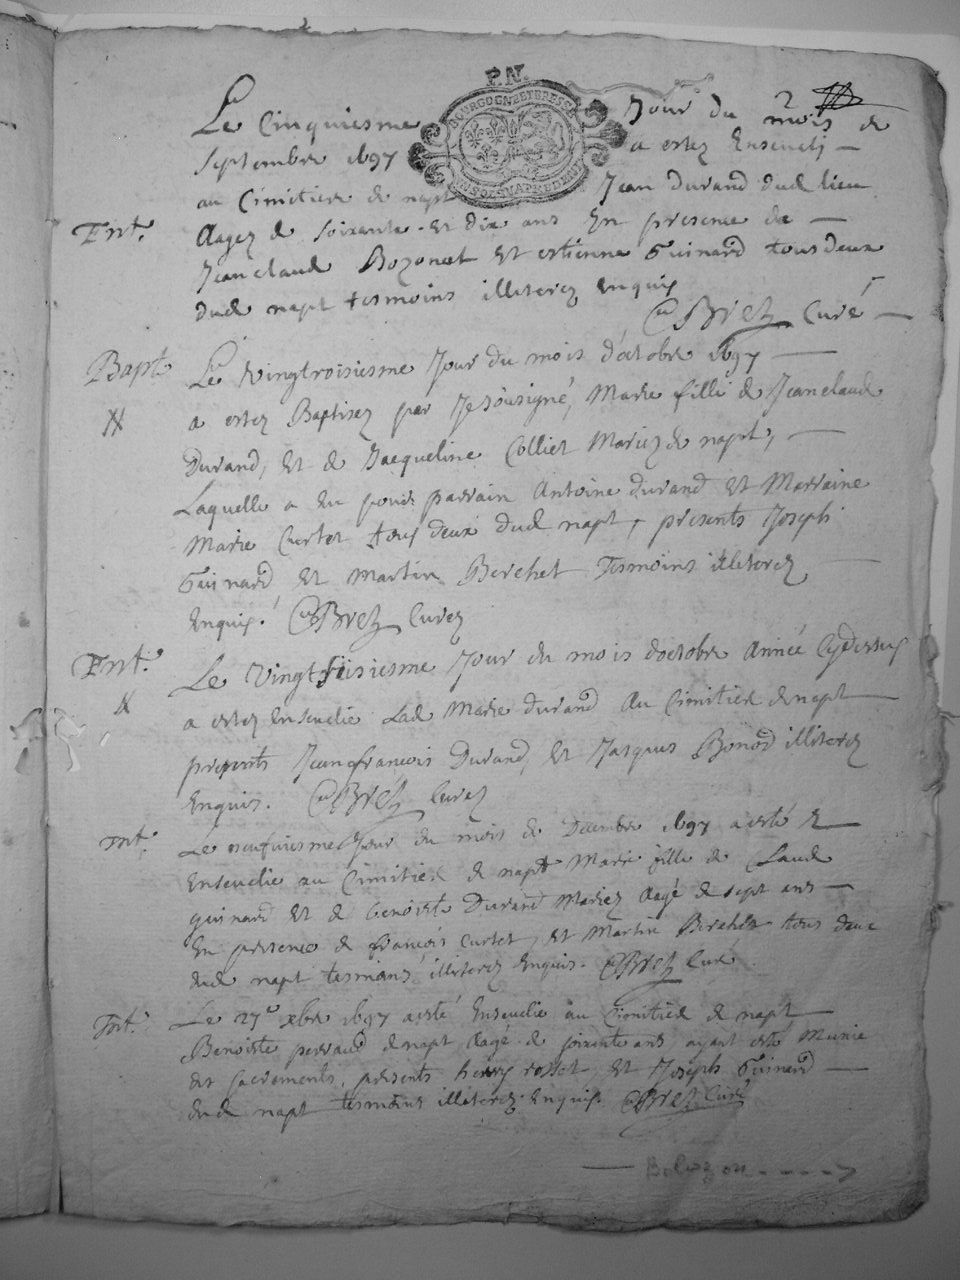 P.N.
BOURGOGNE ET BRESSE
2
Le Cinquiesme Jour du mois de
Septembre 1697 a estez Enseuelj
au Cimitiere de napt Jean Durand dud lieu
Ent. Aagez de soixante et dix ans En presence de
Jeanclaud Bozonet et estienne Guinard tous deux
dud napt tesmoins illiterez Enquis
Brez Curé
Bapt. Le vingtroisiesme Jour du mois d'octobre 1697
a estez Baptisez par Je sousigné, Marie fille de Jeanclaud
Durand, et de Jacqueline Colliet Mariez de napt,
Laquelle a eu pour parrain Antoine durand et Marraine
Marie Curtet tous deux dud napt, presents Joseph
Guinard et Martin Berchet Tesmoins illiterez
Enquis. Brez Curez
Ent. Le Vingtsisiesme Jour du mois d'octobre Année Cydessus
a estez Enseuelie Lad Marie durand Au Cimitiere de napt
presents Jeanfrançois Durand, et Jacques Bonod illiterez
Enquis. Brez Curez
Ent. Le neufuiesme Jour du mois de Decembre 1697 a esté
Enseuelie au Cimitiere de napt Marie fille de Claud
guinard et de Benoiste Durand Mariez Aagé de sept ans
En presence de françois Curtet, et Martin Berchet tous deux
dud napt tesmoins illiterez Enquis. Brez Curé
Ent. Le 27e xbre 1697 a esté Enseuelie au Cimitiere de napt
Benoiste perraud de napt Aagé de soixente ans, ayant esté Munie
des sacrements, presents henry rosset, et Joseph Guinard
dud napt tesmoins illiterez Enquis. Brez Curé